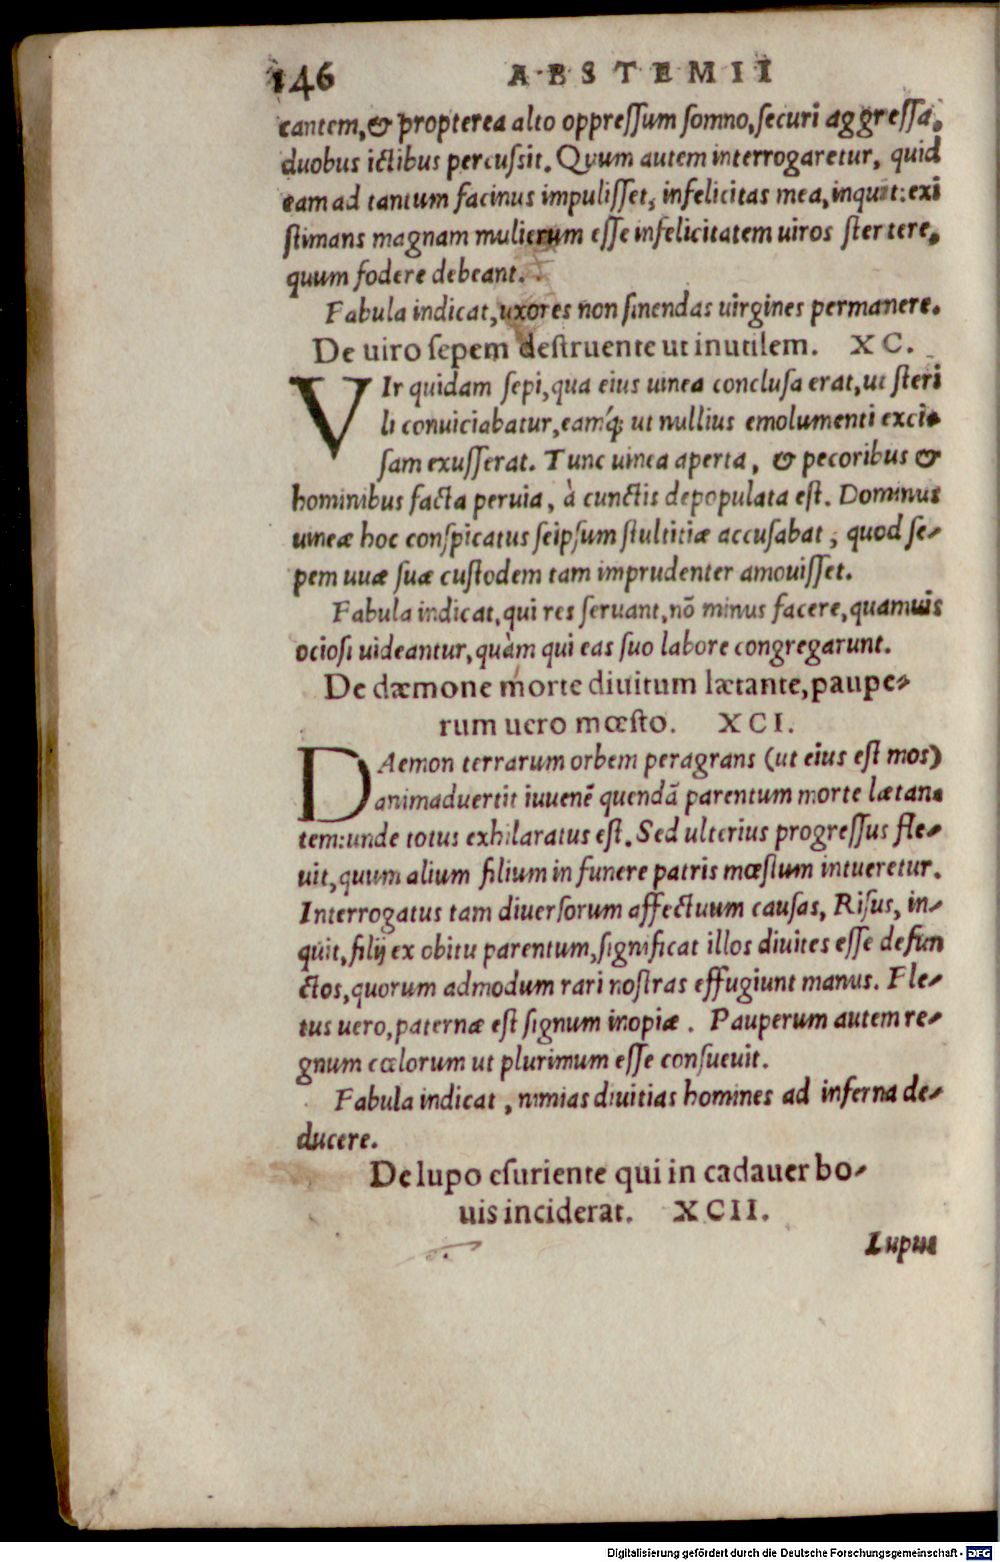 146 ABSTEMII
cantem, & propterea alto oppressum somno, securi aggressa,
duobus ictibus percussit. Quum autem interrogaretur, quid
eam ad tantum facinus impulisset, infelicitas mea, inquit: exi
stimans magnam mulierum esse infelicitatem uiros stertere,
quum fodere debeant.
Fabula indicat, uxores non sinendas uirgines permanere.
De uiro sepem destruente ut inutilem. XC.
VIr quidam sepi, qua eius uinea conclusa erat, ut steri
li conuiciabatur, eamq́; ut nullius emolumenti exci-
sam exusserat. Tunc uinea aperta, & pecoribus &
hominibus facta peruia, à cunctis depopulata est. Dominus
uineæ hoc conspicatus seipsum stultitiæ accusabat, quod se-
pem uuæ suæ custodem tam imprudenter amouisset.
Fabula indicat, qui res seruant, nõ minus facere, quamuis
ociosi uideantur, quàm qui eas suo labore congregarunt.
De dæmone morte diuitum lætante, paupe-
rum uero mœsto. XCI.
DAemon terrarum orbem peragrans (ut eius est mos)
animaduertit iuuenẽ quendã parentum morte lætan-
tem: unde totus exhilaratus est. Sed ulterius progressus fle-
uit, quum alium filium in funere patris mœstum intueretur.
Interrogatus tam diuersorum affectuum causas, Risus, in-
quit, filij ex obitu parentum, significat illos diuites esse defun
ctos, quorum admodum rari nostras effugiunt manus. Fle-
tus uero, paternæ est signum inopiæ. Pauperum autem re-
gnum cœlorum ut plurimum esse consueuit.
Fabula indicat, nimias diuitias homines ad inferna de-
ducere.
De lupo esuriente qui in cadauer bo-
uis inciderat. XCII.
Lupus
Digitalisierung gefördert durch die Deutsche Forschungsgemeinschaft - DFG